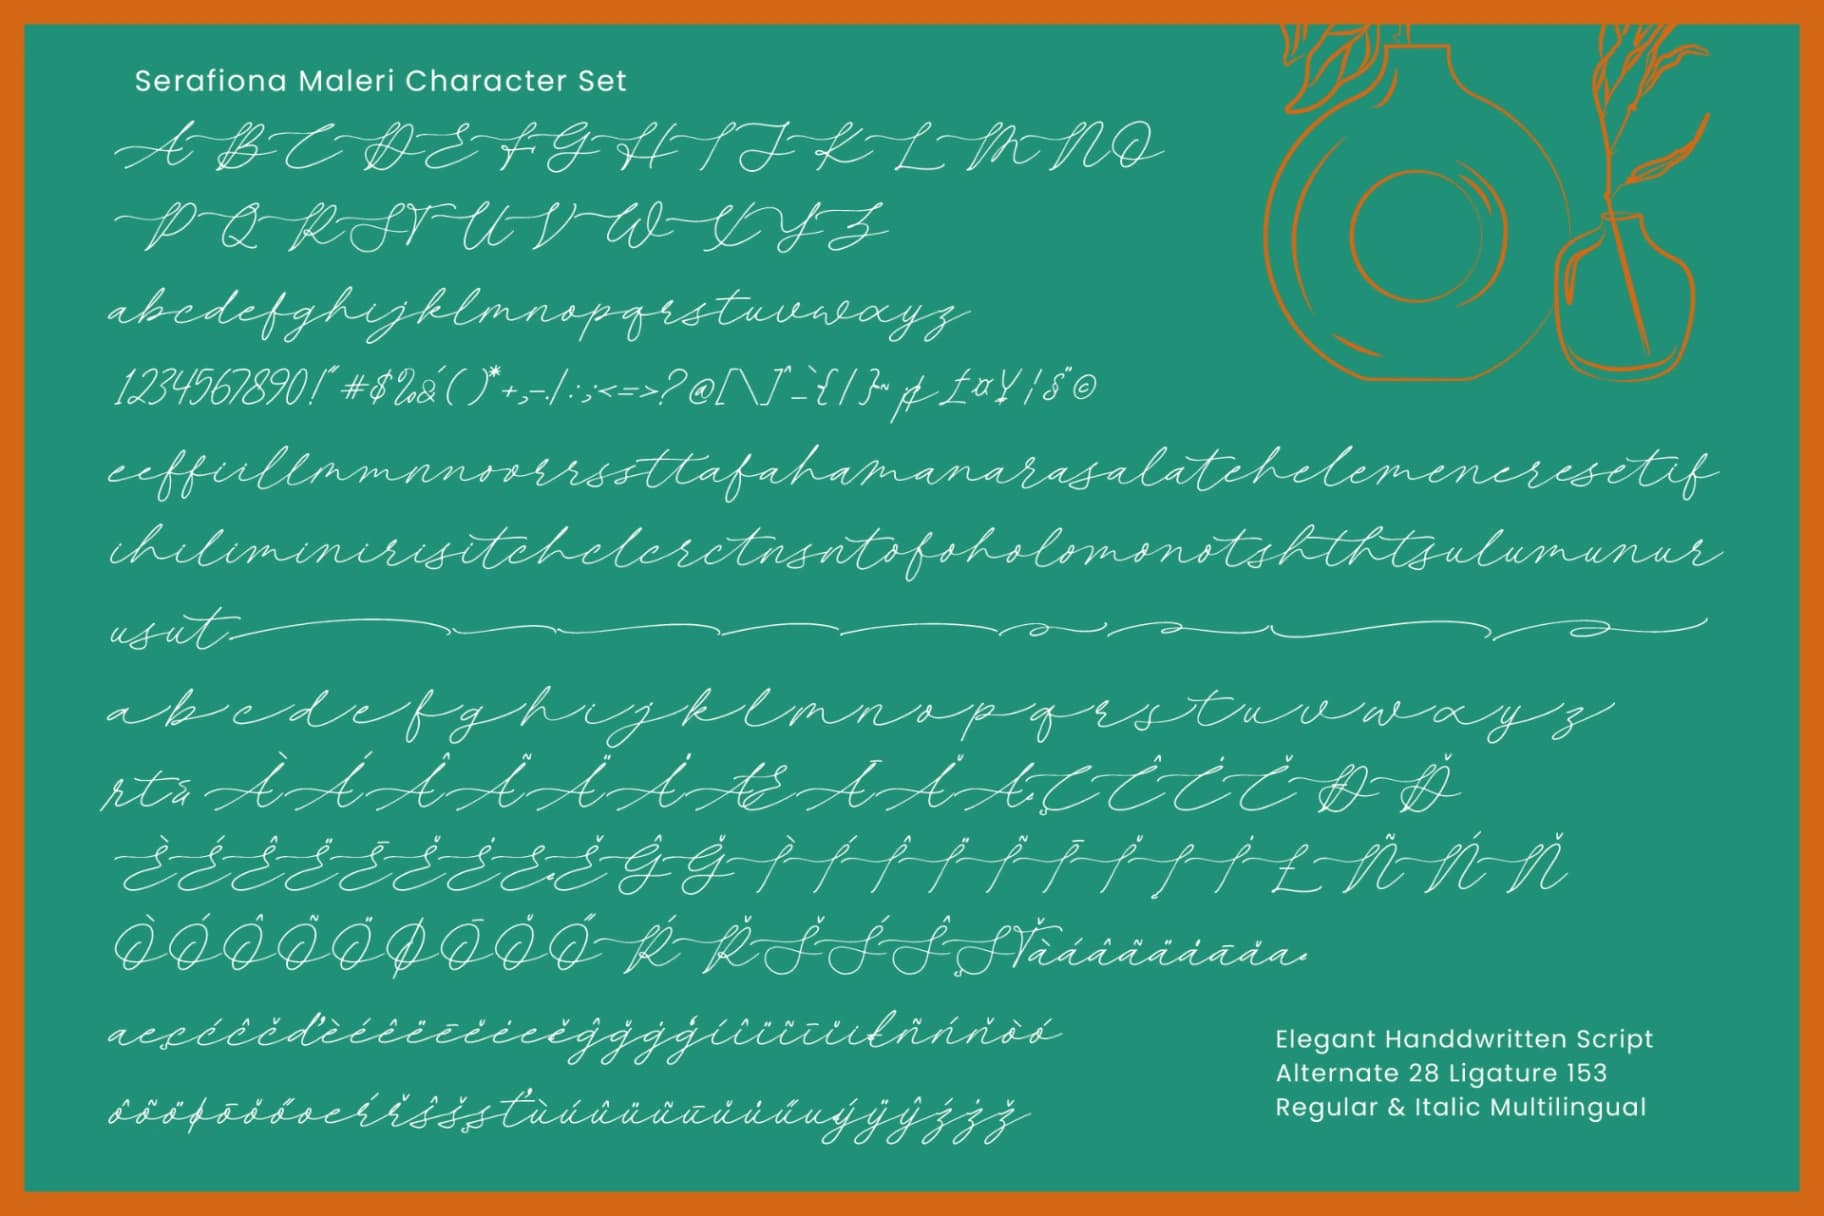 Serafiona Maleri Character Set
A B C D E F G H I J K L M N O
P Q R S T U V W X Y Z
abcdefghijklmnopqrstuvwxyz
1234567890!"#$%&'()*+,-./:;<=>?@[\]^_`{|}~¡¢£¤¥¦§¨©
eeffiillmmnnoorrssttafahamanarasalatehelemeneresetif
ihiliminirisitchclcrctnsntofoholomonotshthtsulumunur
usut
a b c d e f g h i j k l m n o p q r s t u v w x y z
À Á Â Ã Ä Å Æ Ā Ă Ą Ç Ĉ Ċ Č Đ Ď
È É Ê Ë Ē Ĕ Ė Ę Ě Ĝ Ğ Ì Í Î Ï Ĩ Ī Ĭ Į İ Ł Ñ Ń Ň
Ò Ó Ô Õ Ö Ø Ō Ŏ Ő Ŕ Ř Š Ś Ŝ Ş Ť à á â ã ä å ā ă ą
æçćĉčďèéêëēĕėęěĝğġģíîïĩīĭiłñńňòó
ôõöøōŏőœŕřŝšşťùúûüũūŭůűųýÿŷźżž
Elegant Handdwritten Script
Alternate 28 Ligature 153
Regular & Italic Multilingual